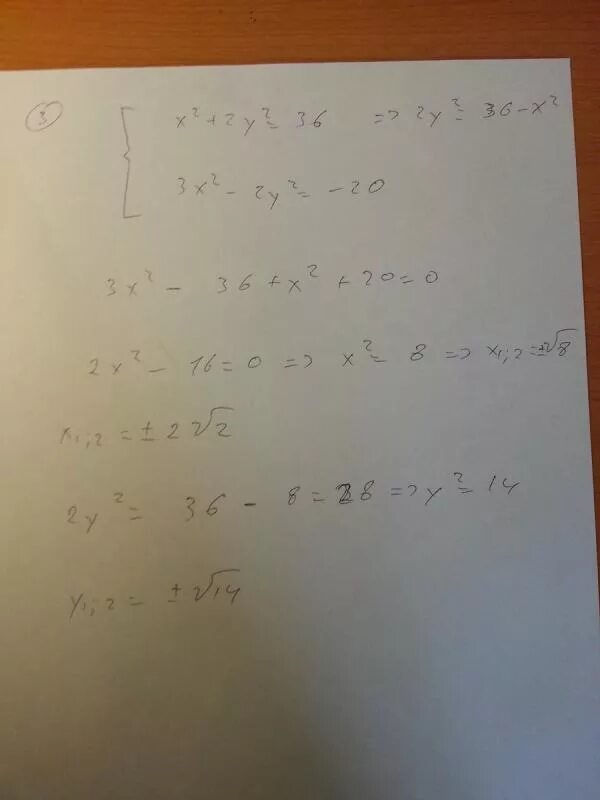 3
x² + 2y² = 36 => 2y² = 36 - x²
3x² - 2y² = -20
3x² - 36 + x² + 20 = 0
2x² - 16 = 0 => x² = 8 => x₁;₂ = ±√8
x₁;₂ = ± 2√2
2y² = 36 - 8 = 28 => y² = 14
y₁;₂ = ± √14